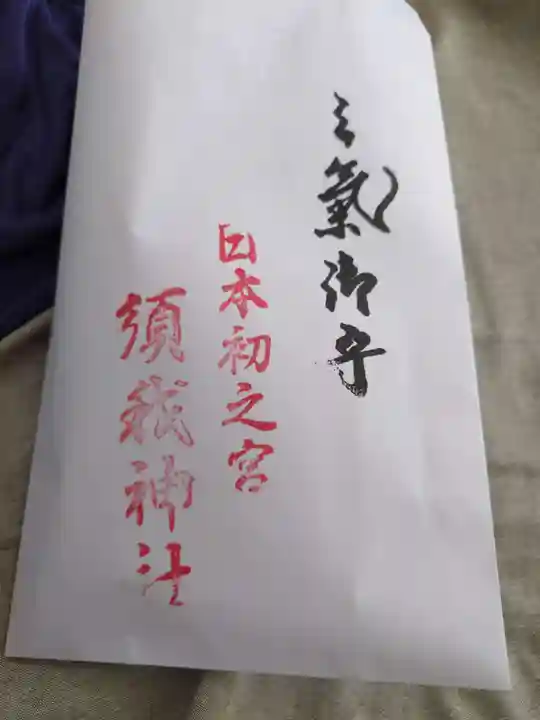 元氣御守
日本初之宮
須我神社